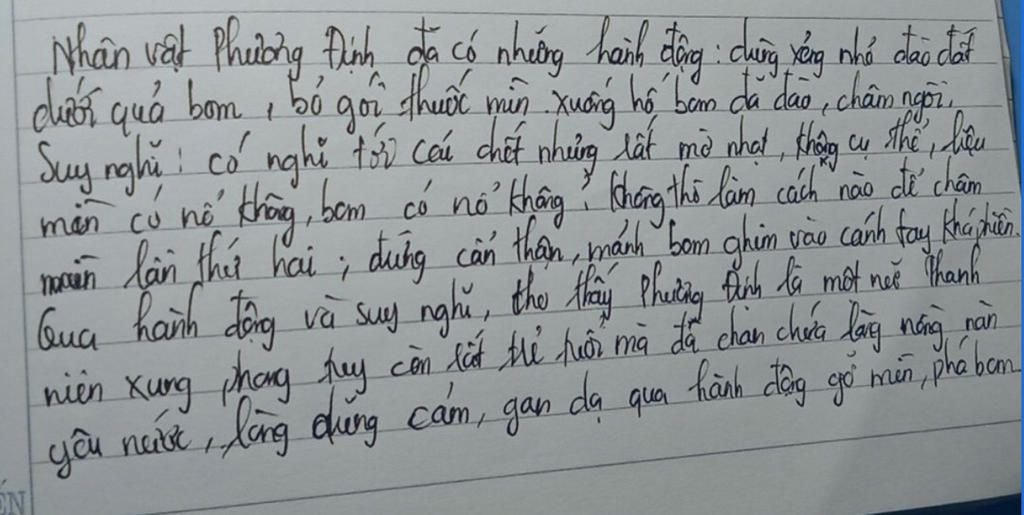 Nhân vật Phương Định đã có những hành động: dùng xẻng nhỏ đào đất
dưới quả bom, bỏ gói thuốc mìn xuống hố bom đã đào, châm ngòi.
Suy nghĩ: có nghĩ tới cái chết nhưng rất mờ nhạt, không cụ thể, liệu
mìn có nổ không, bom có nổ không? Không thì làm cách nào để châm
mìn lần thứ hai; đứng cẩn thận, mảnh bom ghim vào cánh tay khá phiền.
Qua hành động và suy nghĩ, cho thấy Phương Định là một nữ thanh
niên xung phong tuy còn rất trẻ tuổi mà đã chan chứa lòng nồng nàn
yêu nước, lòng dũng cảm, gan dạ qua hành động gỡ mìn, phá bom
ẾN